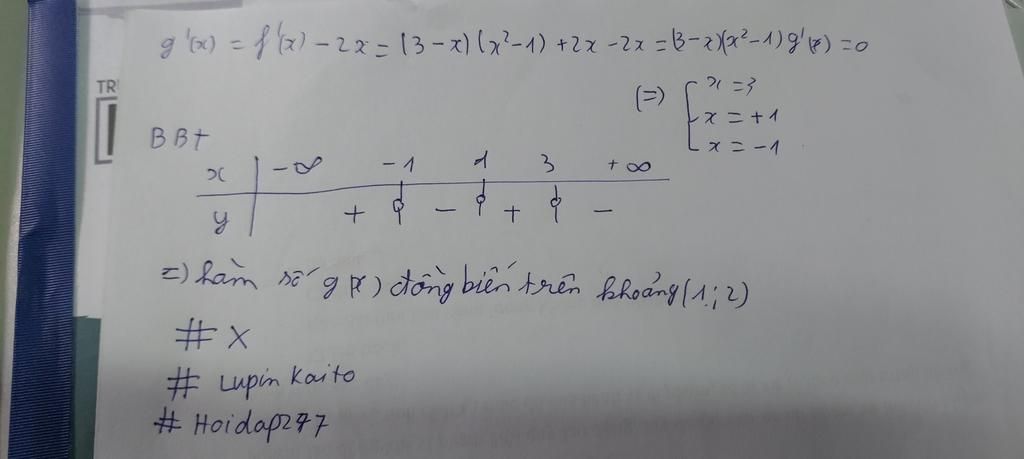 g'(x) = f'(x) - 2x = (3-x)(x²-1) + 2x - 2x = (3-x)(x²-1) g'(x) = 0
(=) x = 3
x = +1
x = -1
TR
BBt
x -∞ -1 1 3 +∞
y + 0 - 0 + 0 -
=) hàm số g(x) đồng biến trên khoảng (1; 2)
# X
# Lupin Kaito
# Hoidap247